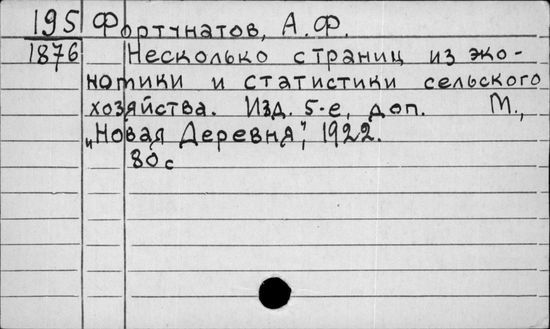 195 Фортунатов, А.Ф.
1876 Несколько страниц из эко-
номики и статистики сельского
хозяйства. Изд. 5-е, доп. М.,
„Новая Деревня", 1922.
80с